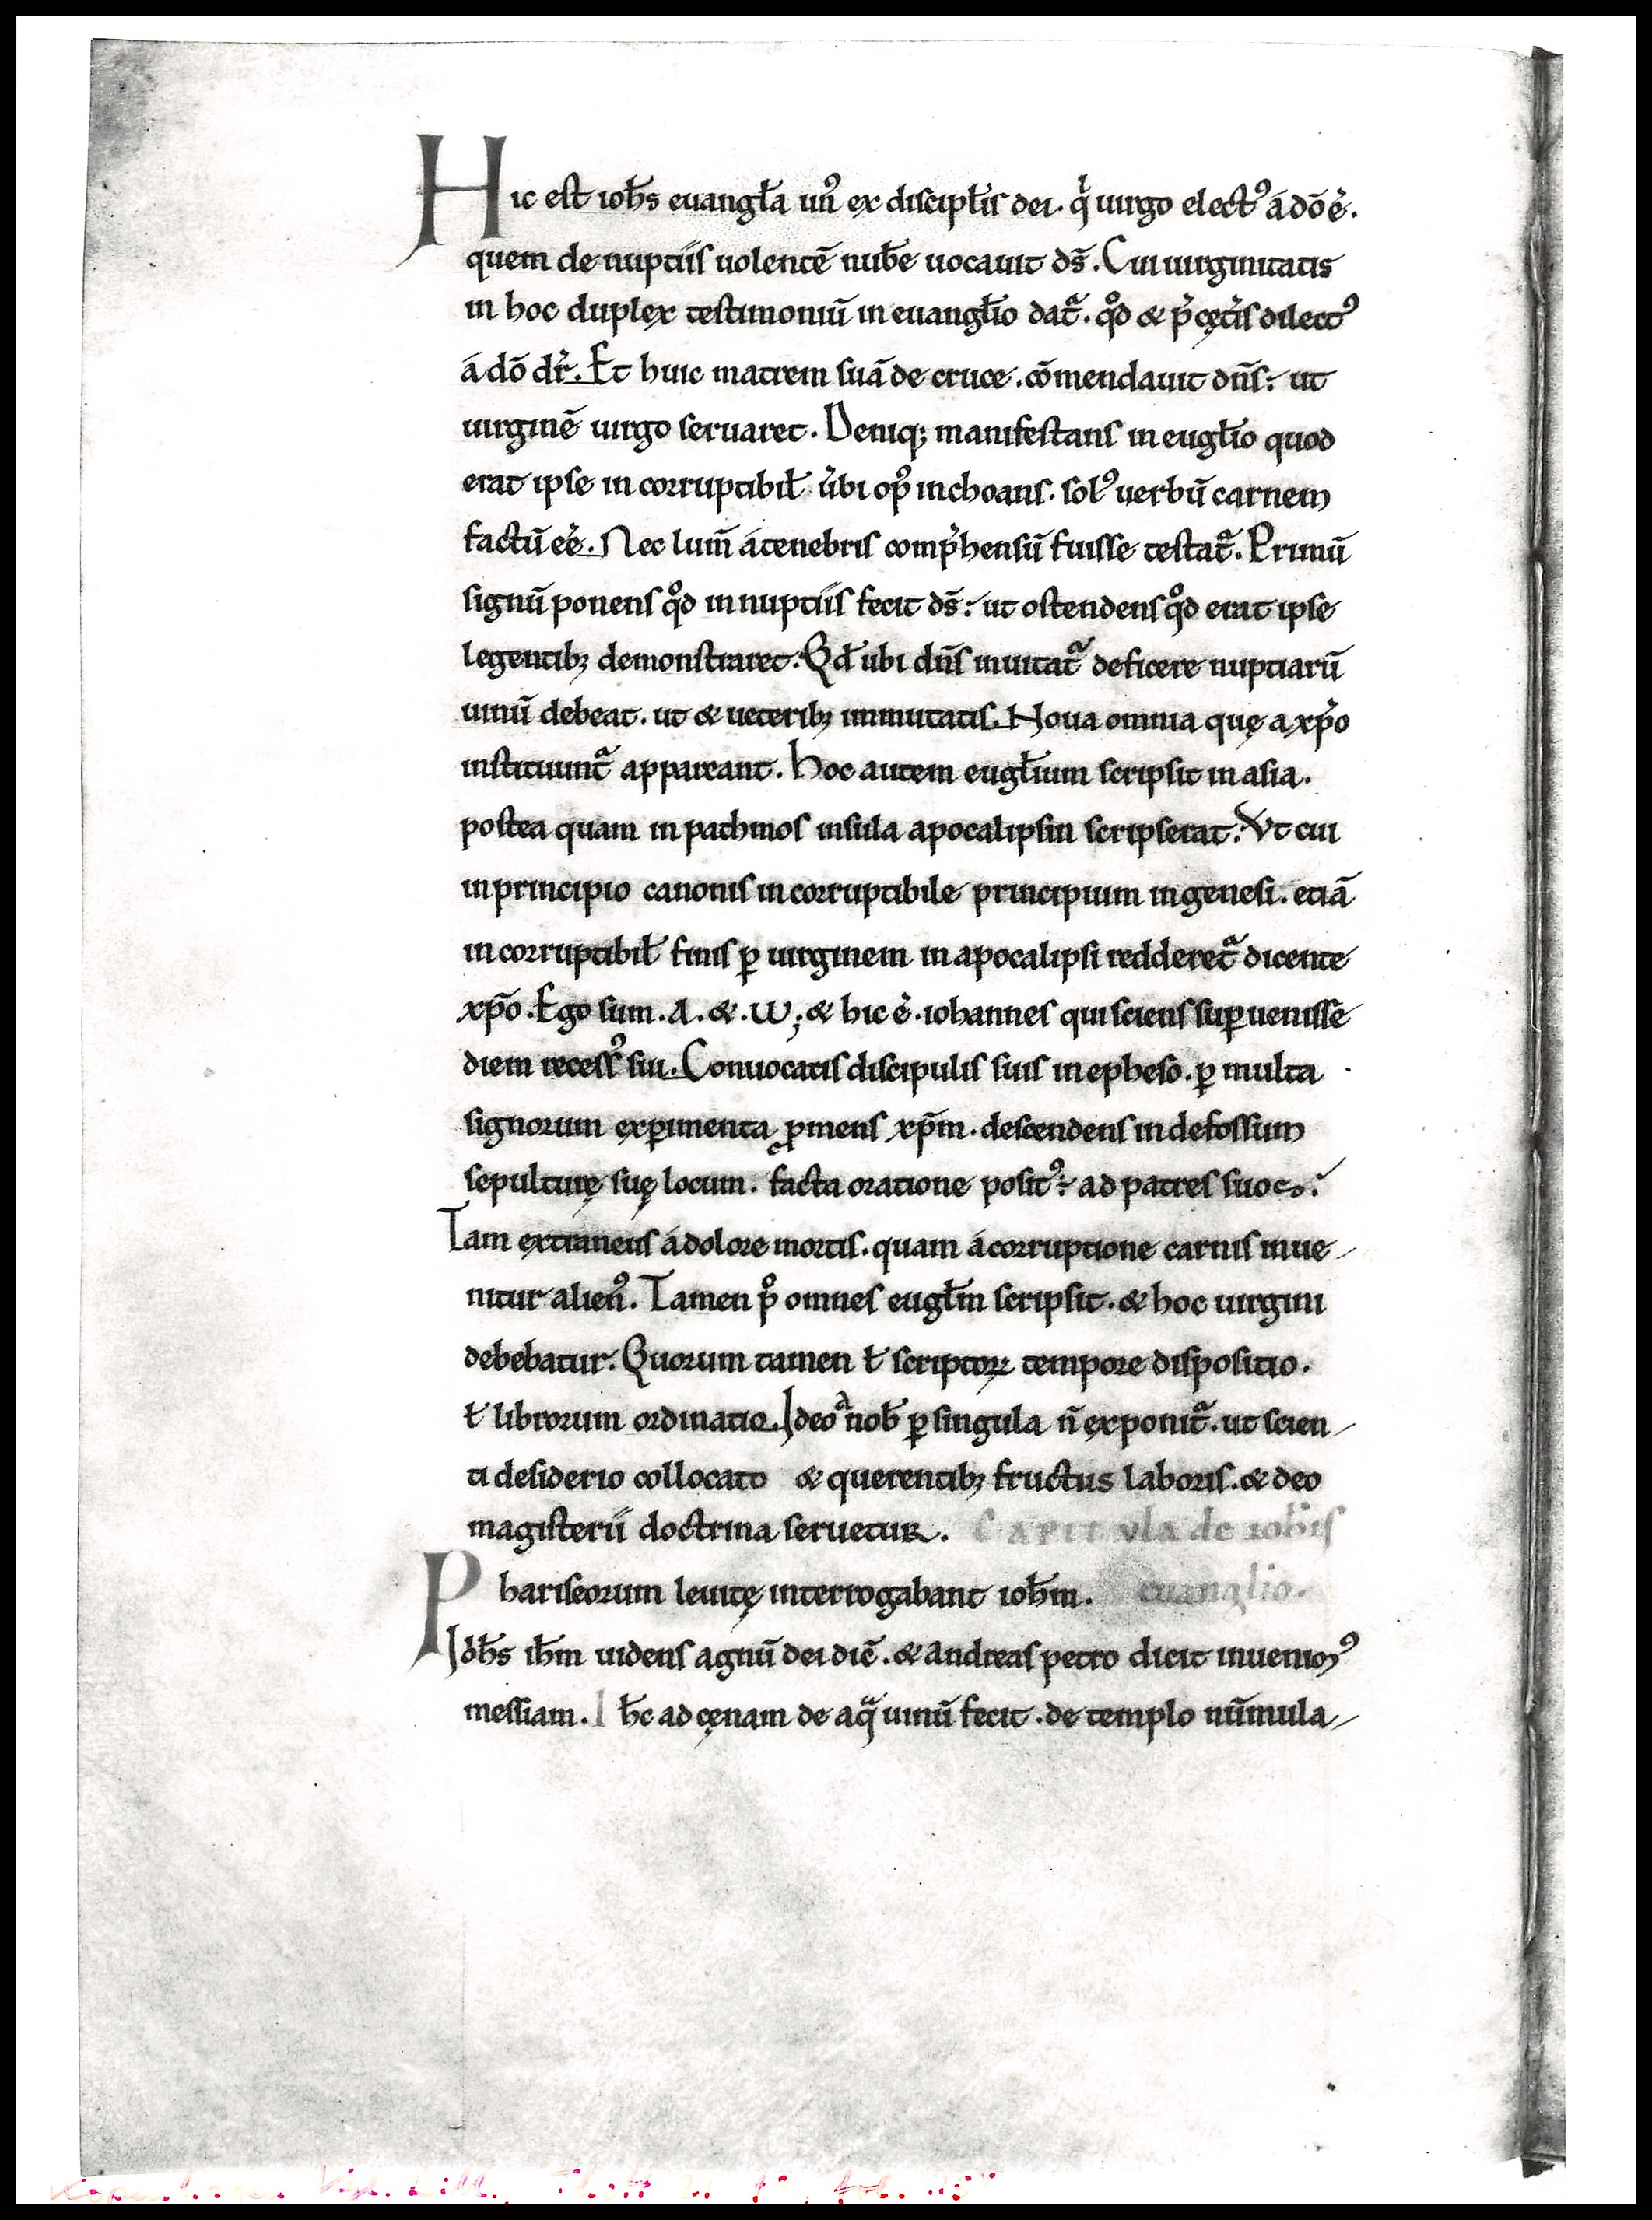 Hic est ioh̅s euangl̅a un⁹ ex discipl̅is dei. qⁱ uirgo elect⁹ á dō ē.
quem de nuptiis uolentē nub̅e uocauit ds̅. Cui uirginitatis
in hoc duplex testimoniū in euangl̅io dat᷑. qᵒd & p̓ cęt̓is dilect⁹
á dō dr̅. Et huic matrem suā de cruce. cōmendauit dn̅s: ut
uirginē uirgo seruaret. Deniq; manifestans in eugl̅io quod
erat ipse in corruptibil̅ u̓bi op⁹ inchoans. sol⁹ uerbū carnem
factū ee̅. Nec lum̅ á tenebris comp̓hensū fuisse testat᷑. Primū
signū ponens qᵒd in nuptiis fecit ds̅: ut ostendens qᵒd erat ipse
legentib; demonstraret. Qd̅ ubi dn̅s inuitat᷑ deficere nuptiarū
uinū debeat. ut & ueterib; immutatis. Noua omnia quę a xp̅o
instituunt᷑ appareant. Hoc autem eugl̅ium scripsit in asia.
postea quam in pathmos insula apocalipsin scripserat. Vt cui
in principio canonis in corruptibile principium in genesi. etiā
in corruptibil̅ finis ꝑ uirginem in apocalipsi redderet᷑ dicente
xp̅o. Ego sum. A. &. ω; & hic ē. iohannes qui sciens suꝑuenisse
diem recess⁹ sui. Conuocatis discipulis suis in epheso. ꝑ multa
signorum exꝑimenta ꝓmens xp̅m. descendens in defossum
sepulturę suę locum. facta oratione posit⁹: ad patres suos.
Tam extraneus á dolore mortis. quam á corruptione carnis inue-
nitur alien⁹. Tamen pᵒ omnes eugl̅m scripsit. & hoc uirgini
debebatur. Quorum tamen ł scriptoꝝ tempore dispositio.
ł librorum ordinatio. Ideo a nob̅ ꝑ singula n̅ exponit᷑. ut scien-
ti desiderio collocato & querentib; fructus laboris. & deo
magisterii doctrina seruetur. Capitvla de ioh̅is
Phariseorum leuitę interrogabant ioh̅m. euanglio.
Ioh̅s ih̅m uidens agnū dei dic̅. & andreas petro dicit inuenim⁹
messiam. I h̅c ad cęnam de aqᵃ uinū fecit. de templo nūmula-